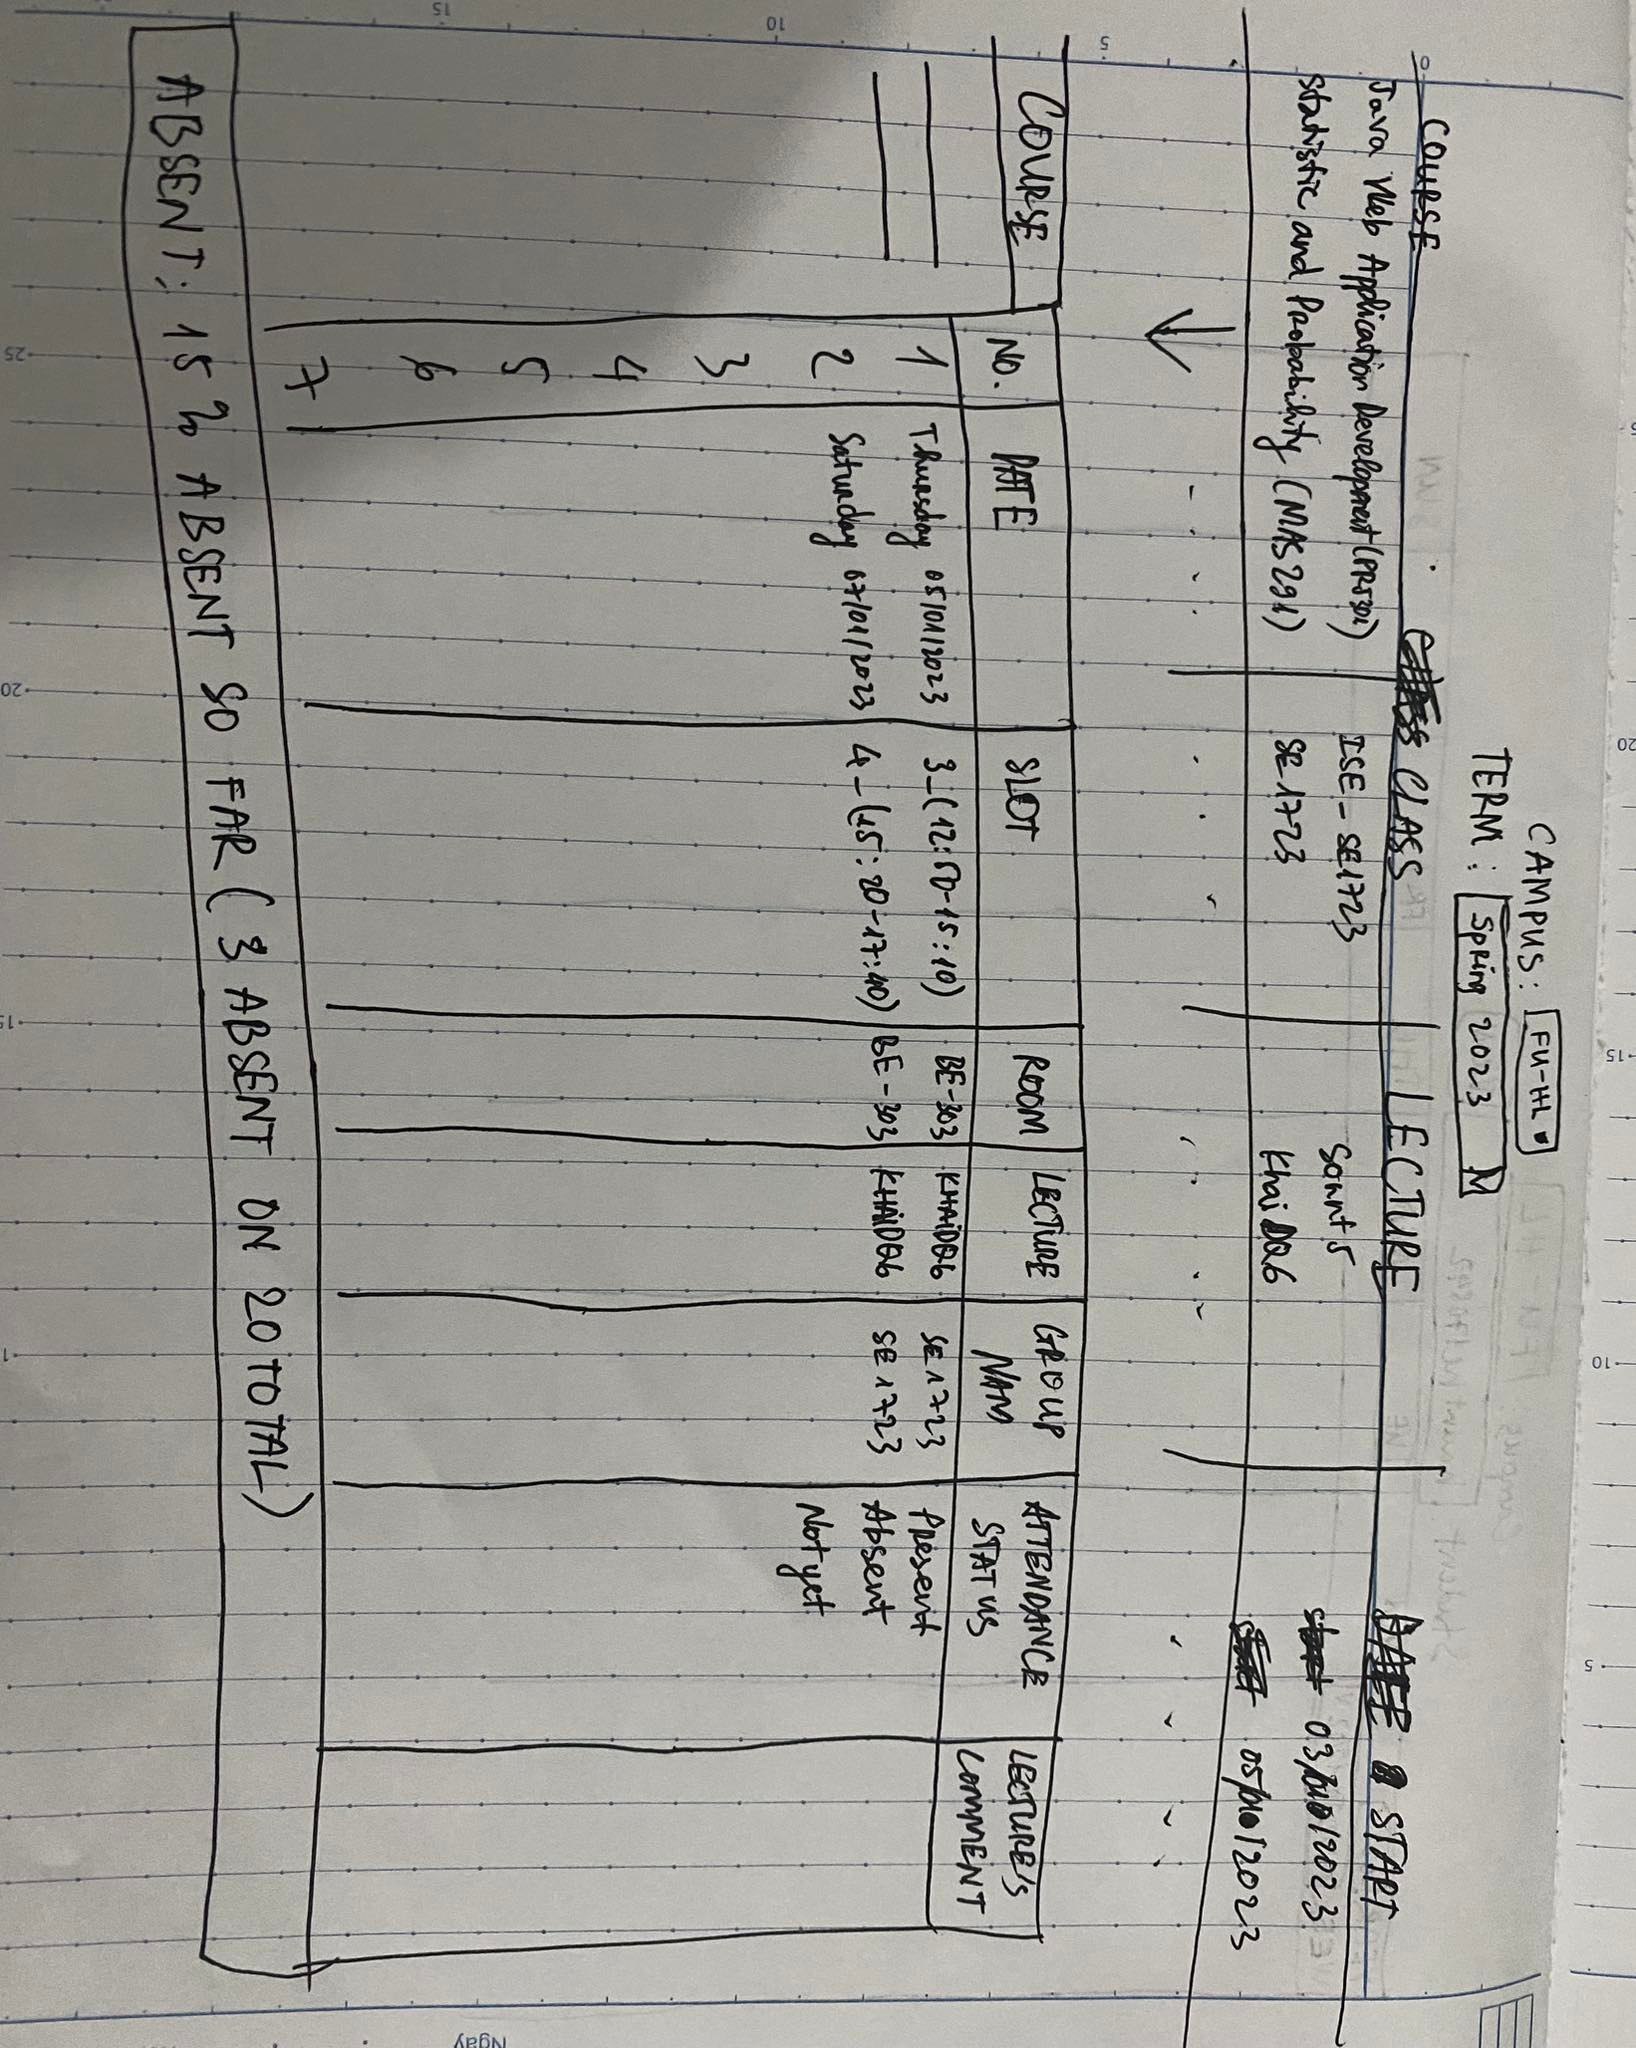 CAMPUS: FU-HL
TERM: Spring 2023
COURSE CLASS LECTURE START
Java Web Application Development (PRJ301) ISE-SE1723 Sonnt5 03/01/2023
Statistic and Probability (MAS291) SE1723 KhaiDQ6 05/01/2023
COURSE NO. DATE SLOT ROOM LECTURE GROUP NAM ATTENDANCE STATUS LECTURE'S COMMENT
1 Thursday 05/01/2023 3-(12:50-15:10) BE-303 KHAIDQ6 SE1723 Present
2 Saturday 07/01/2023 4-(15:20-17:40) BE-303 KHAIDQ6 SE1723 Absent
3 Not yet
4
5
6
7
ABSENT: 15% ABSENT SO FAR (3 ABSENT ON 20 TOTAL)
0 5 10 15
25 20 15 10 5
Ngày